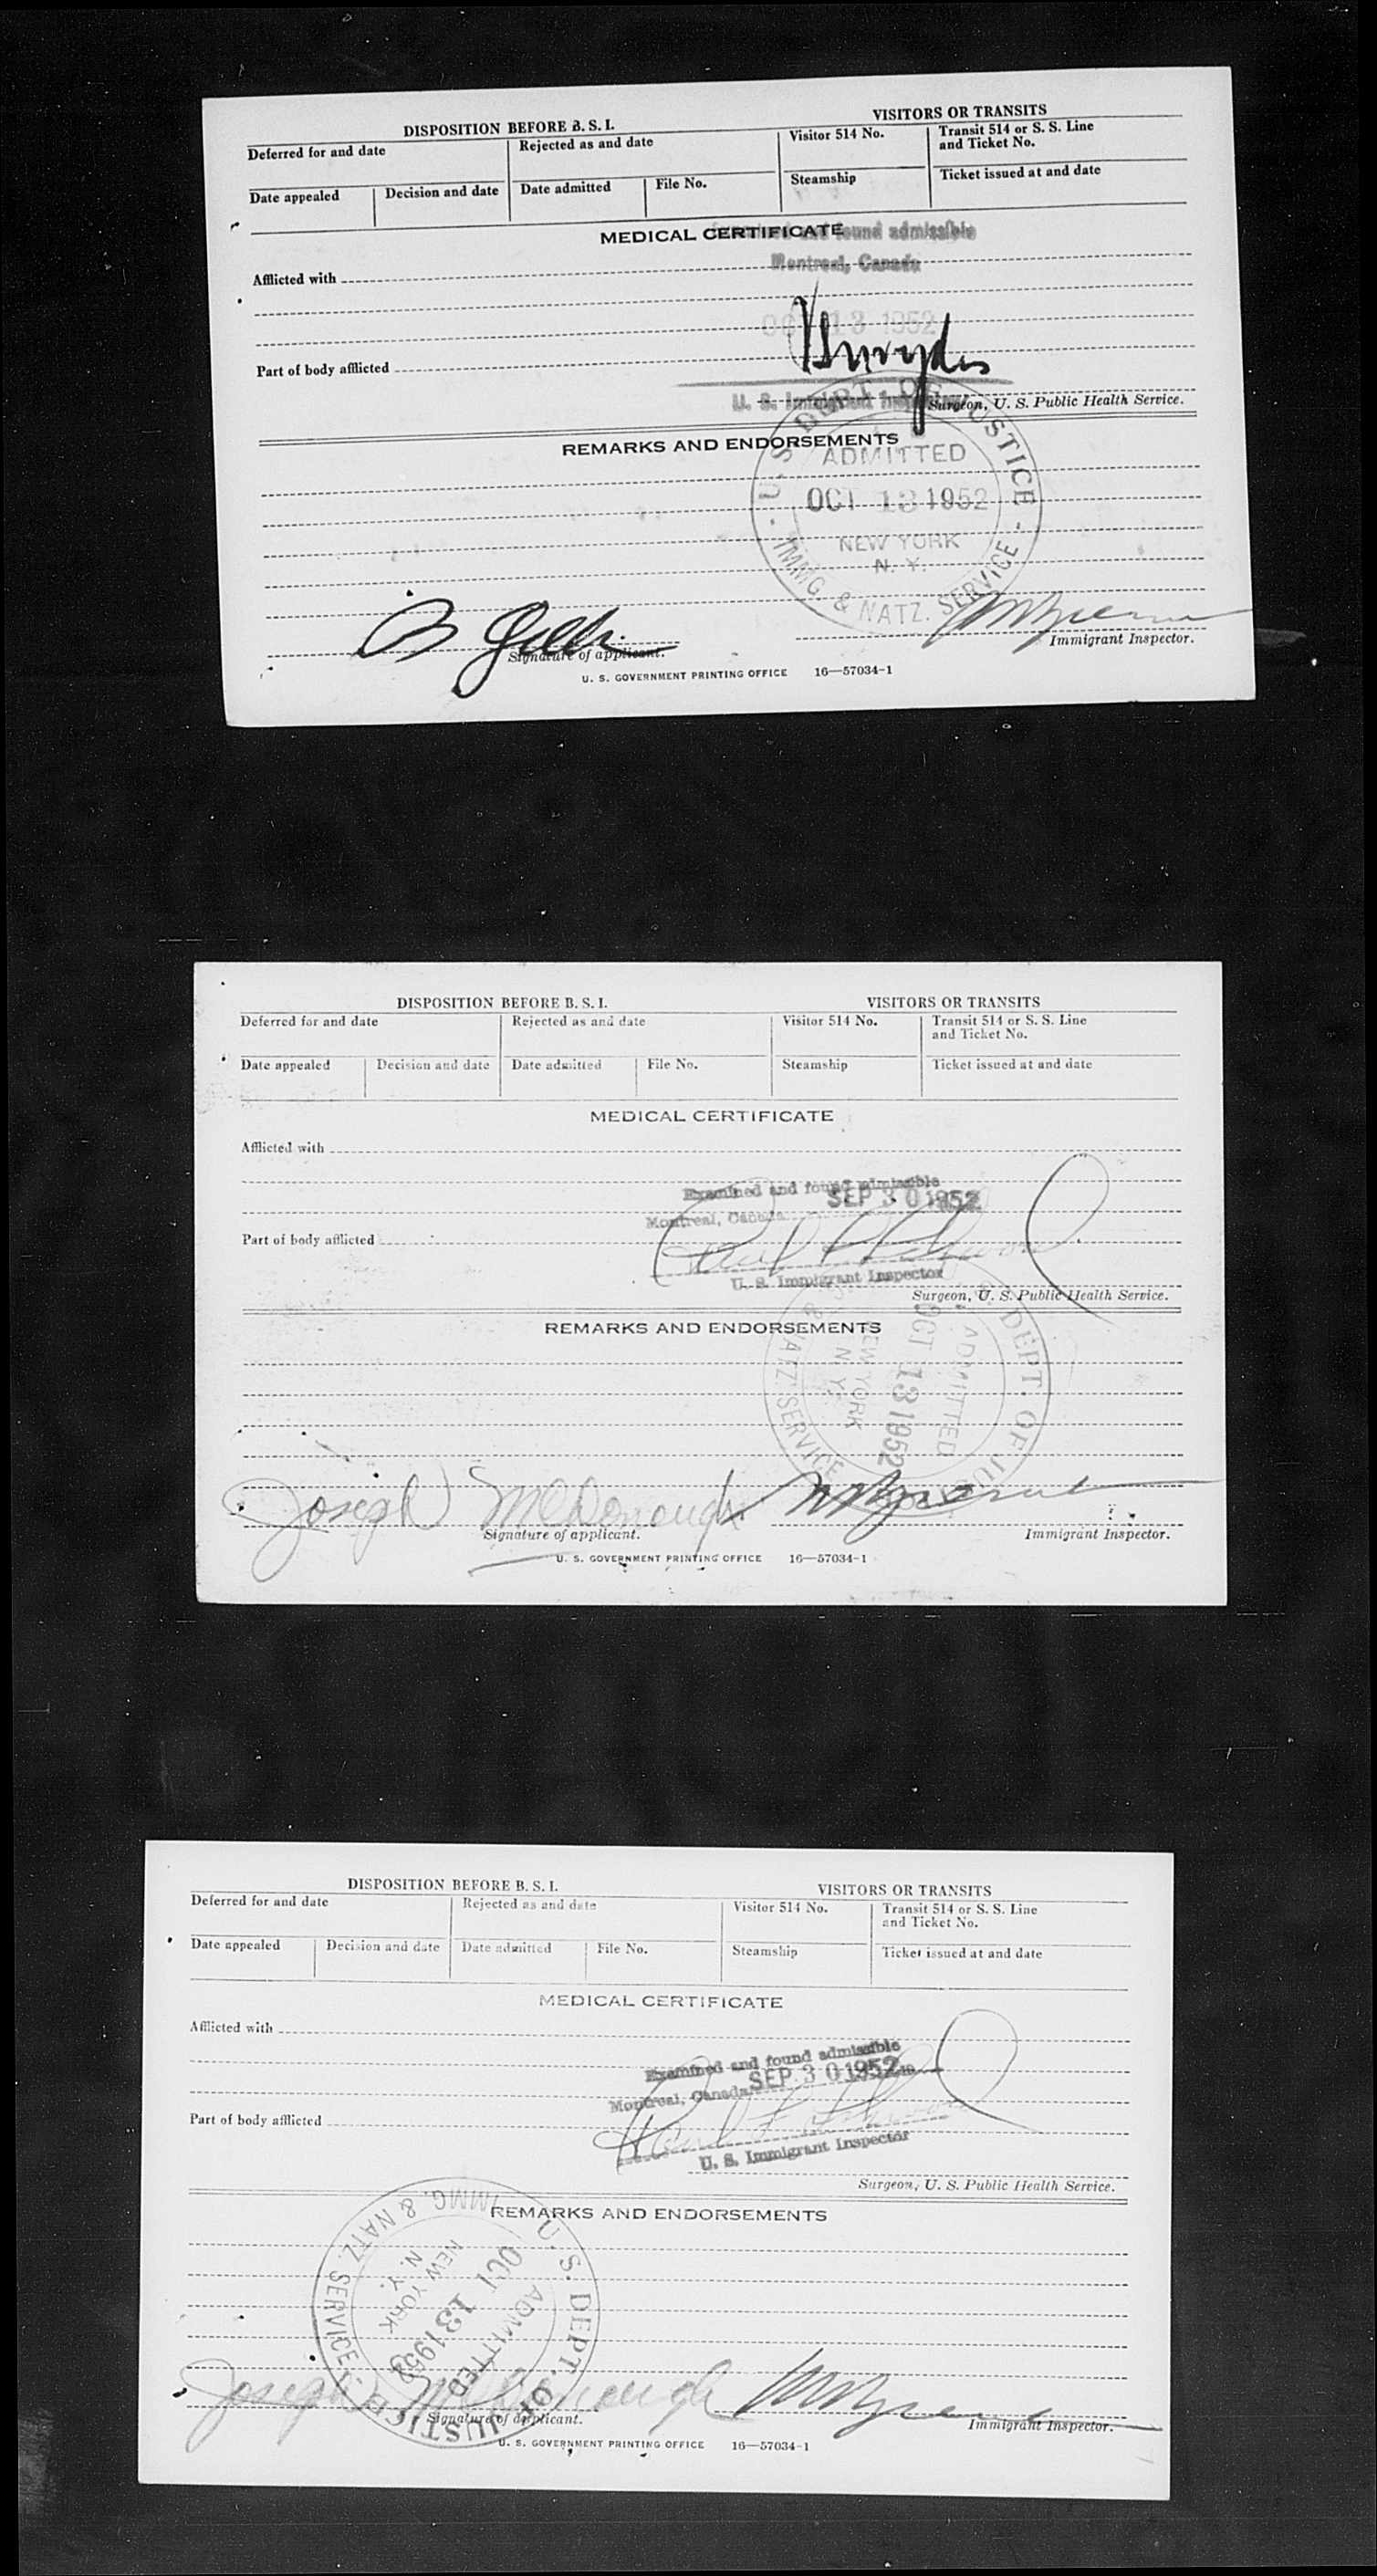 DISPOSITION BEFORE B. S. I.
VISITORS OR TRANSITS
Deferred for and date
Rejected as and date
Visitor 514 No.
Transit 514 or S. S. Line
and Ticket No.
Date appealed
Decision and date
Date admitted
File No.
Steamship
Ticket issued at and date
MEDICAL CERTIFICATE
and found admissible
Afflicted with
Montreal, Canada
OCT 13 1952
Part of body afflicted
U. S. Immigrant
Surgeon, U. S. Public Health Service.
REMARKS AND ENDORSEMENTS
U. S. DEPT. OF JUSTICE - IMMG. & NATZ. SERVICE -
ADMITTED
OCT 13 1952
NEW YORK
N. Y.
Signature of applicant.
Immigrant Inspector.
U. S. GOVERNMENT PRINTING OFFICE 16—57034-1
DISPOSITION BEFORE B. S. I.
VISITORS OR TRANSITS
Deferred for and date
Rejected as and date
Visitor 514 No.
Transit 514 or S. S. Line
and Ticket No.
Date appealed
Decision and date
Date admitted
File No.
Steamship
Ticket issued at and date
MEDICAL CERTIFICATE
Afflicted with
Examined and found admissible
SEP 30 1952
Montreal, Canada
Part of body afflicted
U. S. Immigrant Inspector
Surgeon, U. S. Public Health Service.
REMARKS AND ENDORSEMENTS
DEPT. OF JUS & NATZ. SERVICE
ADMITTED
OCT 13 1952
NEW YORK
N. Y.
Joseph McDonough
Signature of applicant.
Immigrant Inspector.
U. S. GOVERNMENT PRINTING OFFICE 16—57034-1
DISPOSITION BEFORE B. S. I.
VISITORS OR TRANSITS
Deferred for and date
Rejected as and date
Visitor 514 No.
Transit 514 or S. S. Line
and Ticket No.
Date appealed
Decision and date
Date admitted
File No.
Steamship
Ticket issued at and date
MEDICAL CERTIFICATE
Afflicted with
Examined and found admissible
SEP 30 1952
Montreal, Canada
Part of body afflicted
U. S. Immigrant Inspector
Surgeon, U. S. Public Health Service.
REMARKS AND ENDORSEMENTS
U. S. DEPT. OF JUSTICE IMMG. & NATZ. SERVICE
ADMITTED
OCT 13 1952
NEW YORK
N. Y.
Joseph McDonough
Signature of applicant.
Immigrant Inspector.
U. S. GOVERNMENT PRINTING OFFICE 16—57034-1